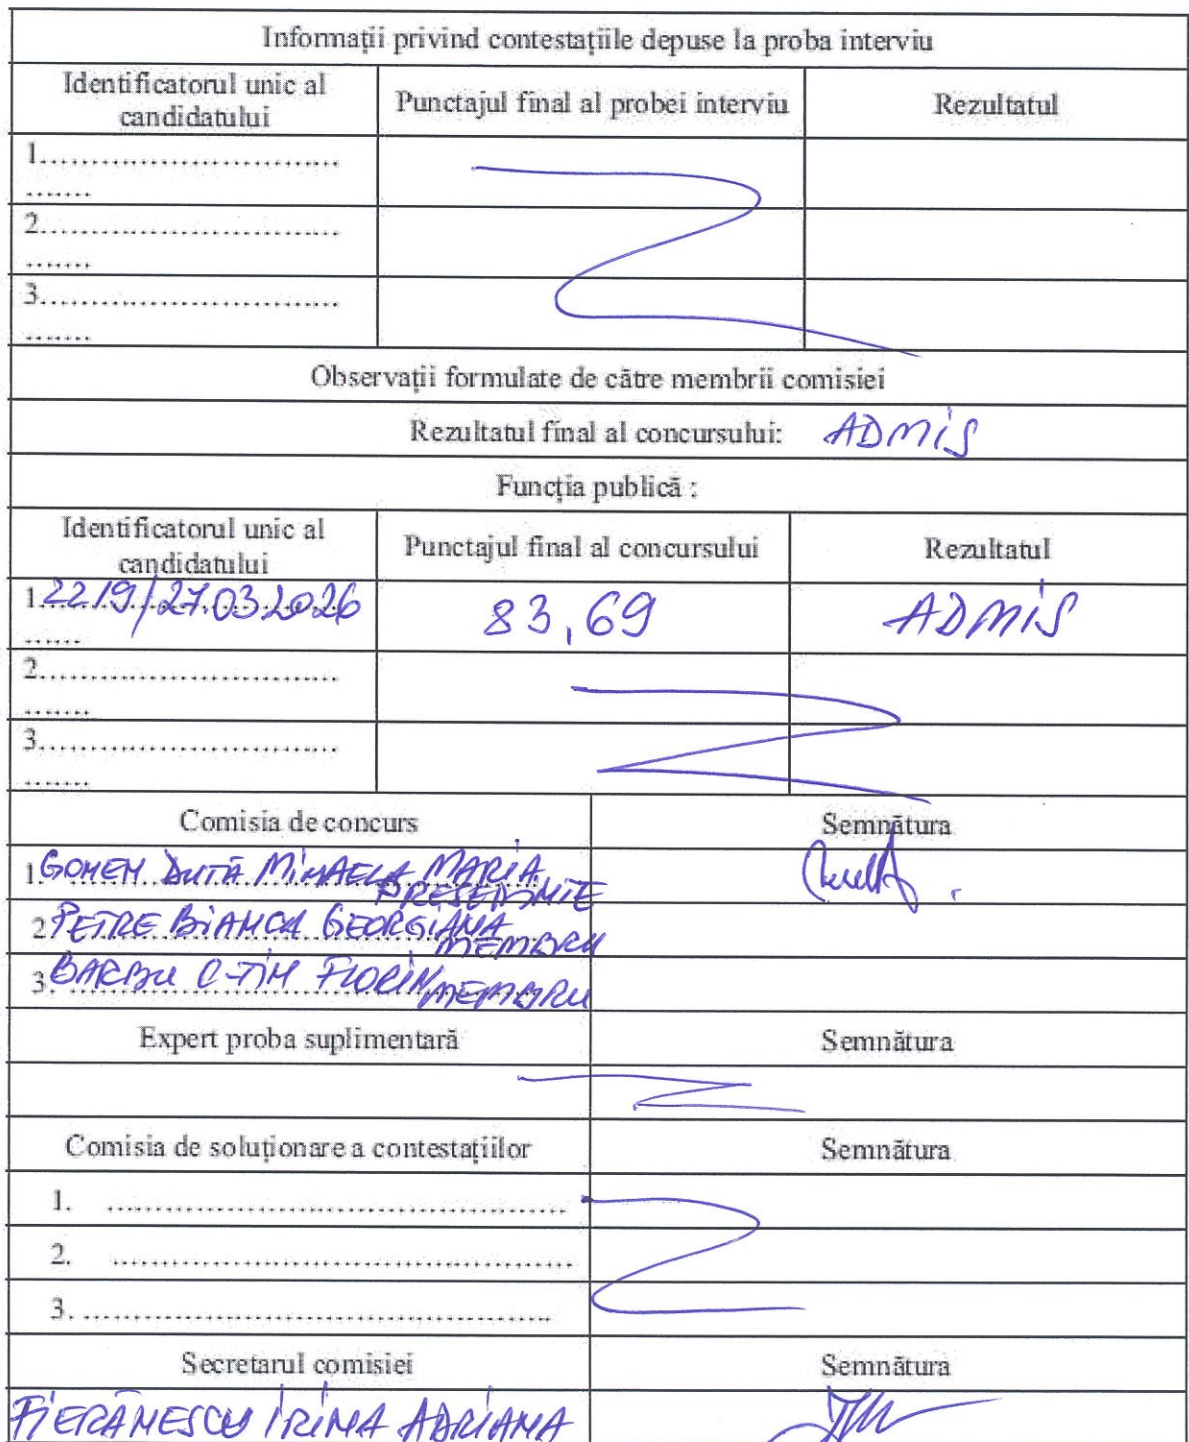 Informații privind contestațiile depuse la proba interviu
Identificatorul unic al candidatului
Punctajul final al probei interviu
Rezultatul
1.................................
.......
2.................................
.......
3.................................
.......
Observații formulate de către membrii comisiei
Rezultatul final al concursului: ADMIS
Funcția publică :
Identificatorul unic al candidatului
Punctajul final al concursului
Rezultatul
1.2219/27.03.2026 83,69 ADMIS
......
2.................................
.......
3.................................
.......
Comisia de concurs Semnătura
1. DUTĂ MIHAELA MARIA
2. PETRE BIANCA GEORGIANA
MEMBRU
3. BARBU C-TIN FLORIN MEMBRU
Expert proba suplimentară Semnătura
Comisia de soluționare a contestațiilor Semnătura
1. ..................................................
2. ..................................................
3. ..................................................
Secretarul comisiei Semnătura
FIERĂNESCU IRINA ADRIANA